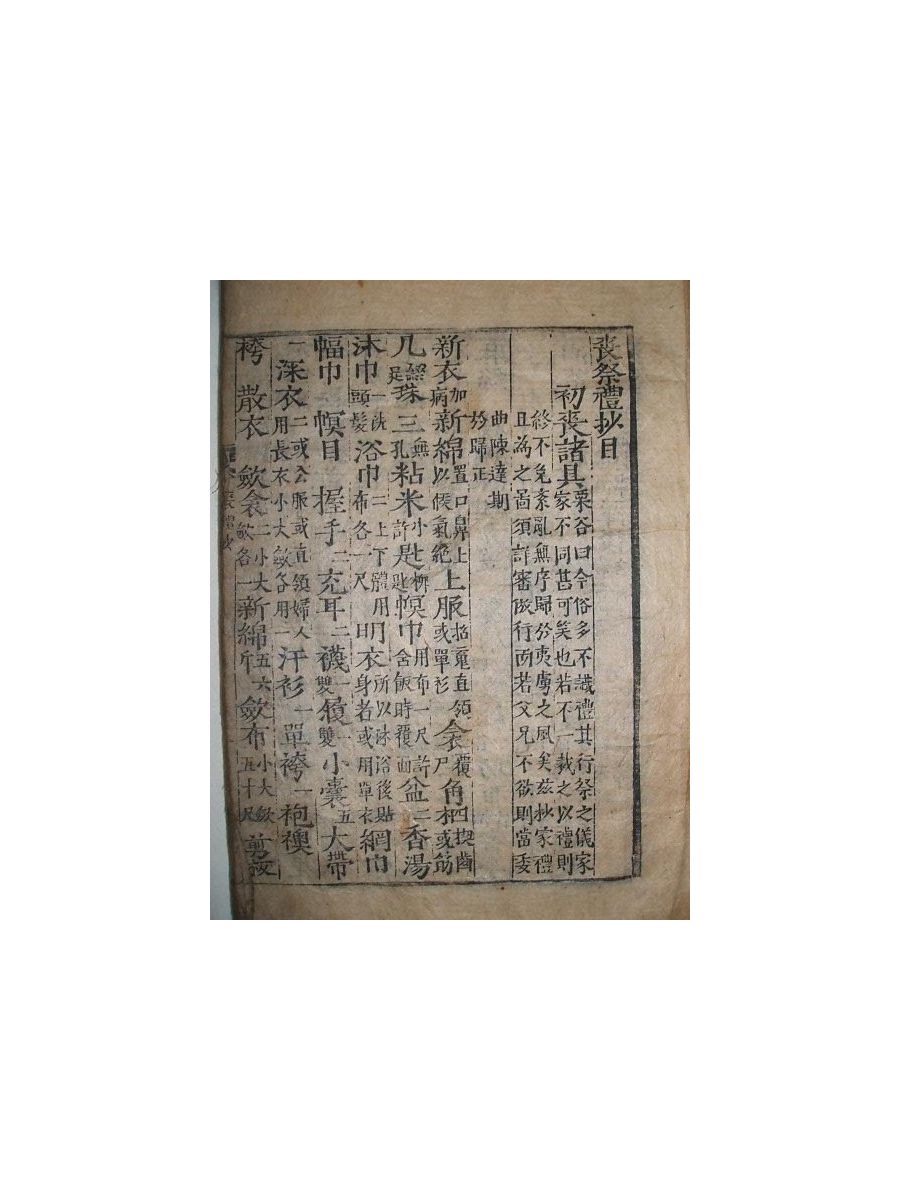 喪祭禮抄目
初喪諸具 栗谷曰今俗多不識禮其行祭之儀家
家不同甚可笑也若不一裁之以禮則
終不免紊亂無序歸於夷虜之風矣茲抄家禮
且爲之啚須詳審倣行而若父兄不欲則當委
曲陳達期
於歸正
新衣 加病 新綿 置口鼻上以候氣絶 上服 招電直領或單衫 衾 覆尸 角柶 四揳齒或筋
几 綴足 珠三 無孔 粘米 小許 匙 柳匙 幎巾 用布一尺許舍飯時覆面 盆二 香湯
沐巾 一洗頭髮 浴巾 二上下體用布各一尺 明衣 所以沐浴後貼身者或用單衣 網巾
幅巾 幎目 握手二 充耳二 襪 一雙 履 一雙 小囊五 大帶
一 深衣 二或公服或直領婦人用長衣小大斂各用一 汗衫一 單袴一 袍襖
袴 散衣 斂衾 二小大斂各一 新綿 五六斤 斂布 小大斂五十尺 剪板
喪禮抄